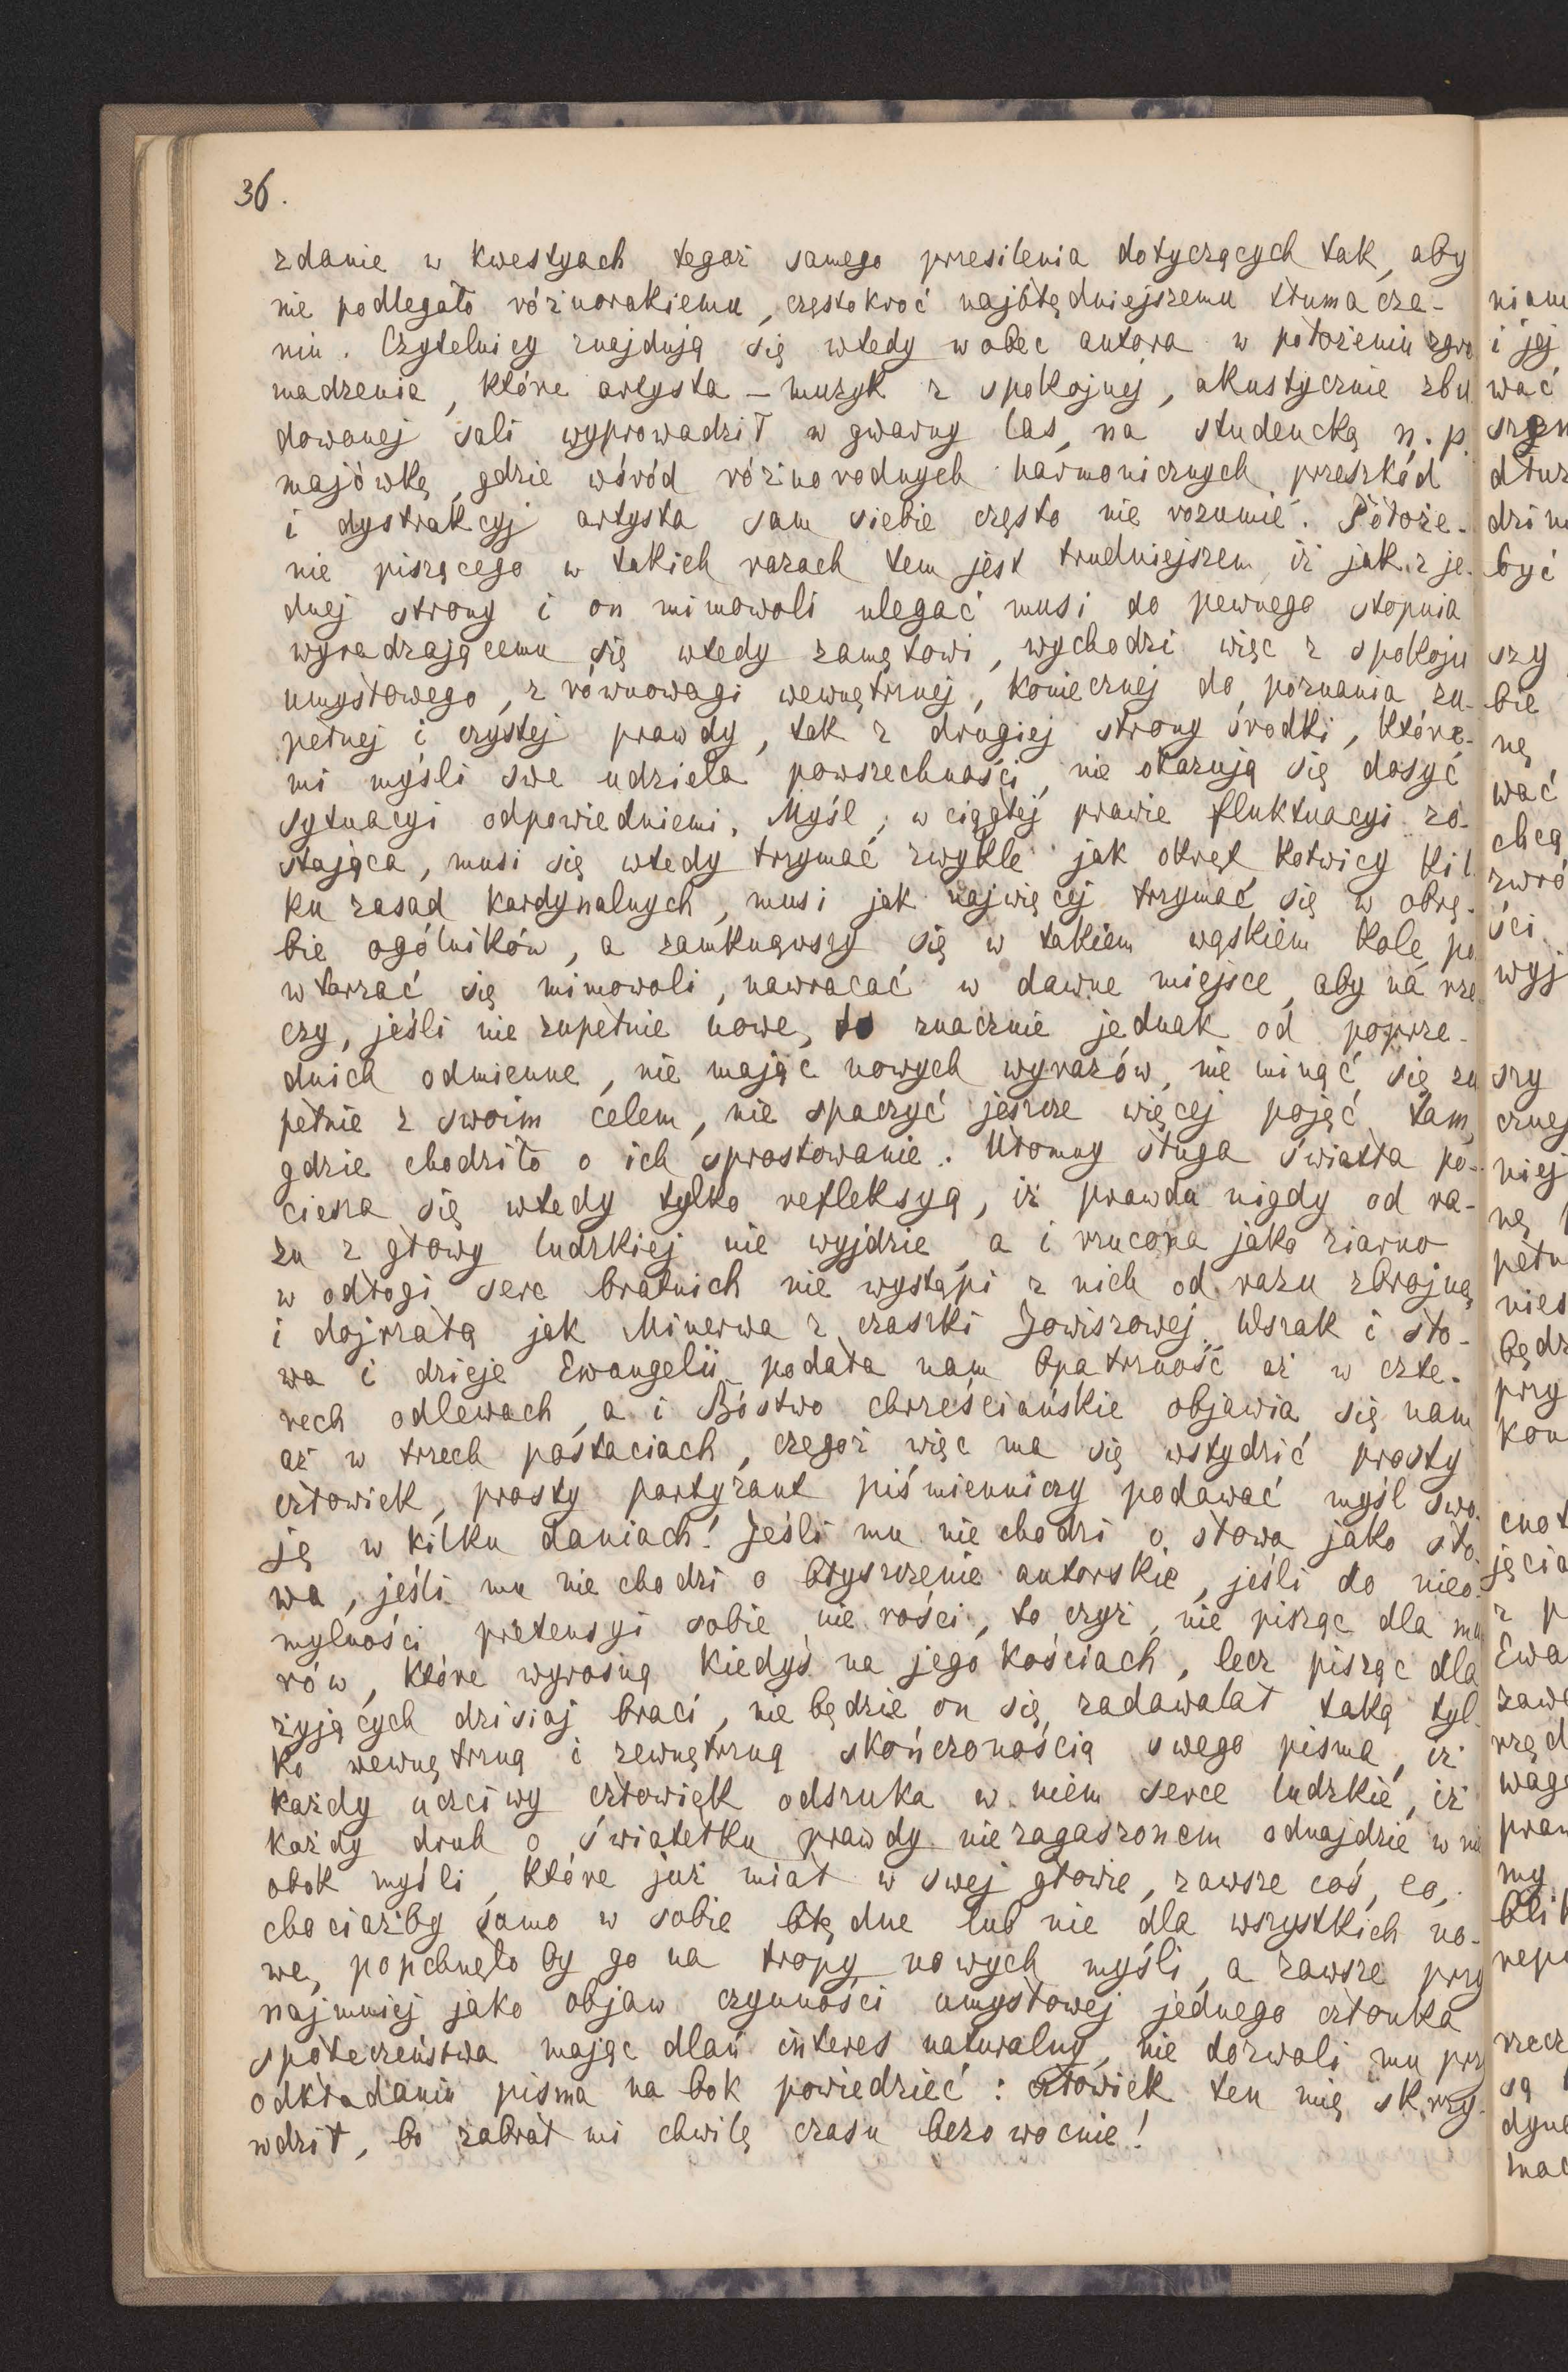 36.
zdanie w kwestyach tegoż samego przesilenia dotyczących tak, aby
nie podlegało różnorakiemu, częstokroć najbłędniejszemu tłumacze-
niu. Czytelnicy znajdują się wtedy wobec autora w położeniu zgro
madzenia, które artysta – muzyk z spokojnej, akustycznie zbu
dowanej sali wyprowadził w gwarny las, na studencką n. p.
majówkę, gdzie wśród różnorodnych harmonicznych przeszkód
i dystrakcyj artysta sam siebie często nie rozumie. Położe-
nie piszącego w takich razach tem jest trudniejszem, iż jak z je-
dnej strony i on mimowoli ulegać musi do pewnego stopnia
wyradzającemu się wtedy zamętowi, wychodzi więc z spokoju
umysłowego, z równowagi wewnętrznej, koniecznej do poznania zu-
pełnej i czystej prawdy, tak z drugiej strony środki, które-
mi myśli swe udziela powszechności, nie okazują się dosyć
sytuacyi odpowiedniemi. Myśl, w ciągłej prawie fluktuacyi zo-
stająca, musi się wtedy trzymać zwykle jak okręt kotwicy kil
ku zasad kardynalnych, musi jak najwięcej trzymać się w obrę-
bie ogólników, a zamknąwszy się w takiem wąskiem kole, po
wtarzać się mimowoli, nawracać w dawne miejsce, aby na rze
czy, jeśli nie zupełnie nowe, to znacznie jednak od poprze-
dnich odmienne, nie mając nowych wyrazów, nie minąć się zu
pełnie z swoim celem, nie spaczyć jeszcze więcej pojęć tam,
gdzie chodziło o ich sprostowanie. Ułomny sługa światła po-
ciesza się wtedy tylko refleksyą, iż prawda nigdy od ra-
zu z głowy ludzkiej nie wyjdzie, a i rzucona jako ziarno
w odłogi serc bratnich nie wystąpi z nich od razu zbrojną
i dojrzałą jak Minerwa z czaszki Jowiszowej. Wszak i sło-
wa i dzieje Ewangelii podała nam Opatrzność aż w czte-
rech odlewach, a i Bóstwo chrześciańskie objawia się nam
aż w trzech postaciach, czegoż więc ma się wstydzić prosty
człowiek, prosty partyzant piśmienniczy podawać myśl swo-
ję w kilku daniach! Jeśli mu nie chodzi o słowa jako sło-
wa, jeśli mu nie chodzi o błyszczenie autorskie, jeśli do nieo-
mylności pretensyi sobie nie rości, to czyż, nie pisząc dla mu
rów, które wyrosną kiedyś na jego kościach, lecz pisząc dla
żyjących dzisiaj braci, nie będzie on się zadawalał taką tyl-
ko wewnętrzną i zewnętrzną skończonością swego pisma, iż
każdy uczciwy człowiek odszuka w niem serce ludzkie, iż
każdy druh o światełku prawdy niezagaszonem odnajdzie w ni
obok myśli, które już miał w swej głowie, zawsze coś, co,
chociażby samo w sobie błędne lub nie dla wszystkich no-
we, popchnęłoby go na tropy nowych myśli, a zawsze przy
najmniej jako objaw czynności umysłowej jednego członka
społeczeństwa mając dlań interes naturalny, nie dozwoli mu prz
odkładaniu pisma na bok powiedzieć: człowiek ten mię skrzy-
wdził, bo zabrał mi chwilę czasu bezowocnie!